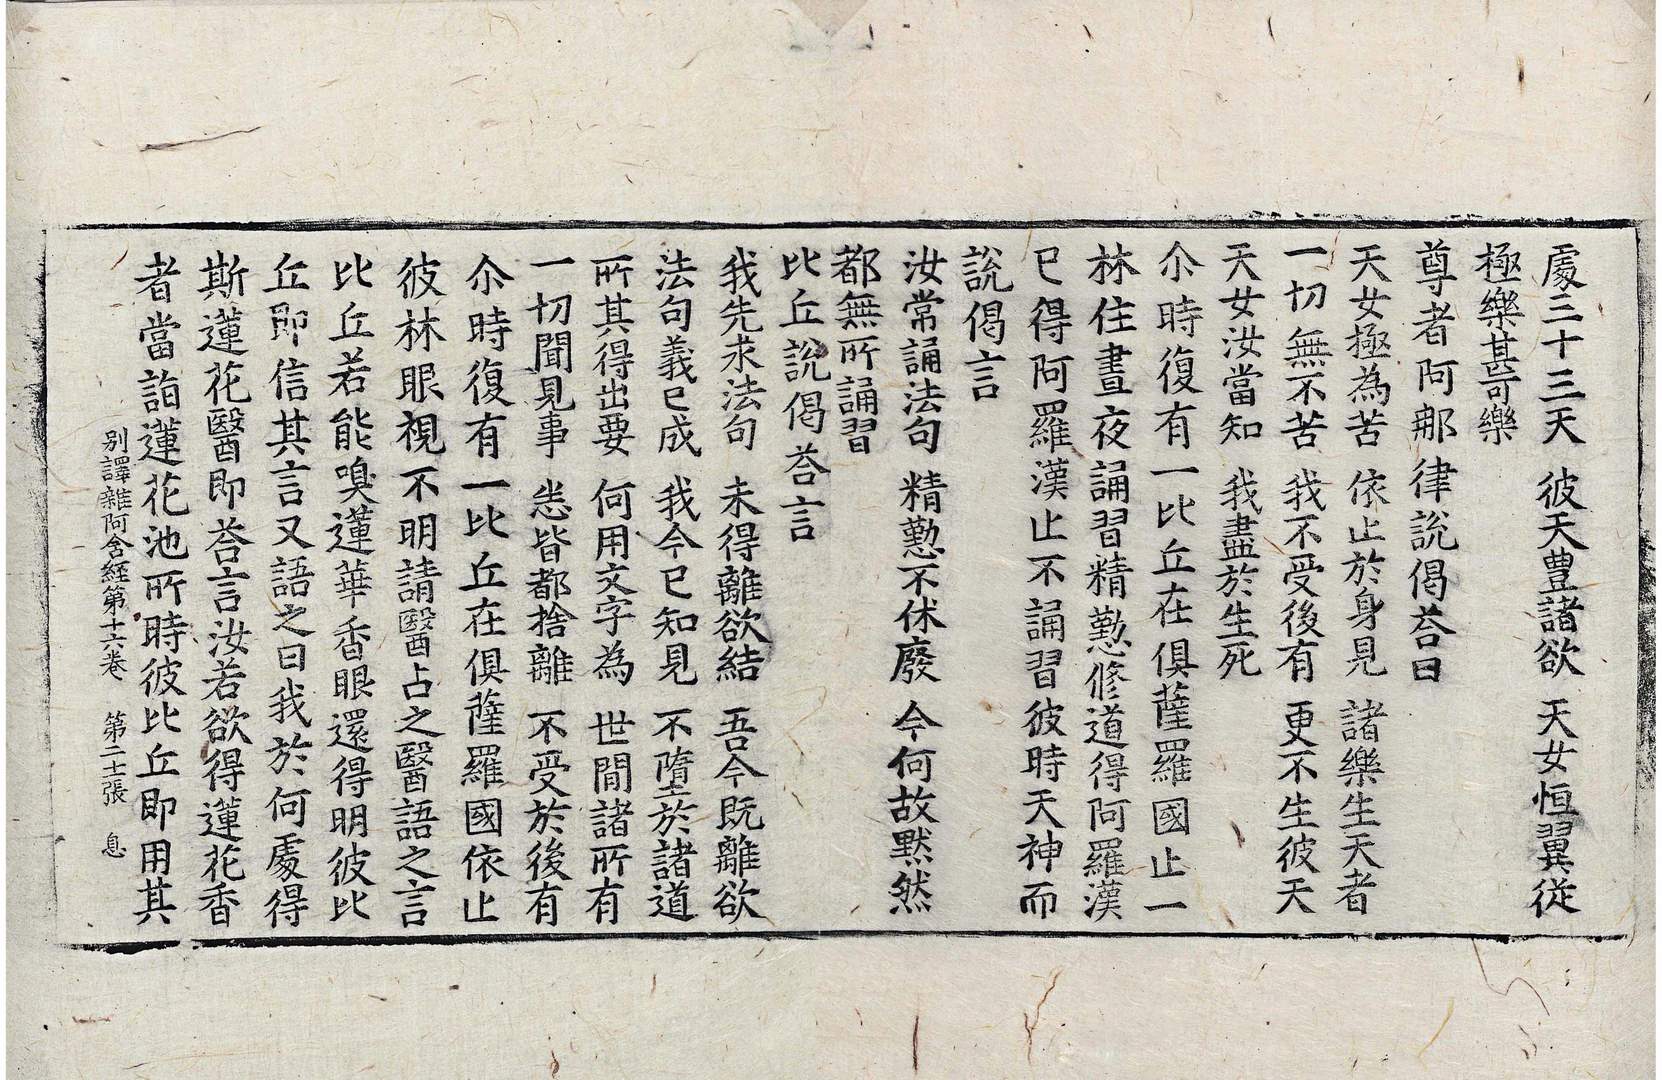 處三十三天　彼天豊諸欲　天女恒翼従
極樂甚可樂
尊者阿那律說偈荅曰
天女極為苦　依止於身見　諸樂生天者
一切無不苦　我不受後有　更不生彼天
天女汝當知　我盡於生死
尒時復有一比丘在俱薩羅國止一
林住晝夜誦習精懃修道得阿羅漢
已得阿羅漢止不誦習彼時天神而
說偈言
汝常誦法句　精懃不休廢　今何故默然
都無所誦習
比丘說偈荅言
我先求法句　未得離欲結　吾今既離欲
法句義已成　我今已知見　不墮於諸道
所其得出要　何用文字為　世間諸所有
一切聞見事　悉皆都捨離　不受於後有
尒時復有一比丘在俱薩羅國依止
彼林眼視不明請醫占之醫語之言
比丘若能嗅蓮華香眼還得明彼比
丘即信其言又語之曰我於何處得
斯蓮花醫即荅言汝若欲得蓮花香
者當詣蓮花池所時彼比丘即用其
別譯雜阿含經第十六卷　第二十張　息